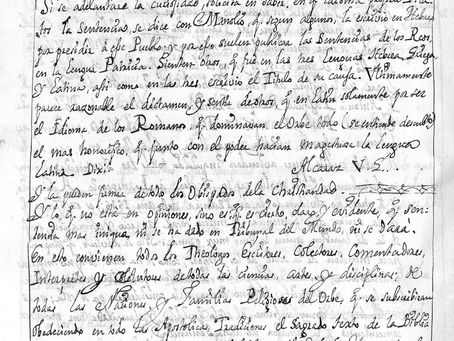 Si se adelantare la curiosidad, solicita en saber, en q.
to la Sentencias, se dice con Manolo, q. segun algunos, la escrivió en Hebreo
por presidir à esse Pueblo, y por esso suelen publicar las Sentencias de los Reos,
en la Lengua Patricia. Sienten otros, q. fue en las tres Lenguas, Hebrea, Griega,
y Latina, assi como en las tres escrivio el Titulo de su causa. Vltimamente
parece razonable el dictamen, y sentir de otros, q. en Latin solamente por ser
el Idioma de los Romanos q. dominavan el Orbe todo
el mas honorifico, q. junto con el poder hacian magestuosa la lengua
Latina. Dixi.
Alcaraz V.
de todo los Obispados de la Christiandad.
Y lo q. no està en opiniones, sino es q. es cierto, claro, y evidente, q. sen-
tenda mas iniqua, ni se ha dado en Tribunal del Mundo, ni se darà.
En esto convienen todos los Theologos, Escritores, Colectores, Comentadores,
Interpretes y de todas las ciencias, artes, y disciplinas; de
todas las Naciones, y Familias Religiosas del Orbe, q. se subscribieran
obedeciendo en todo las Apostolicas Tradiciones, el sagrado texto de la Biblia